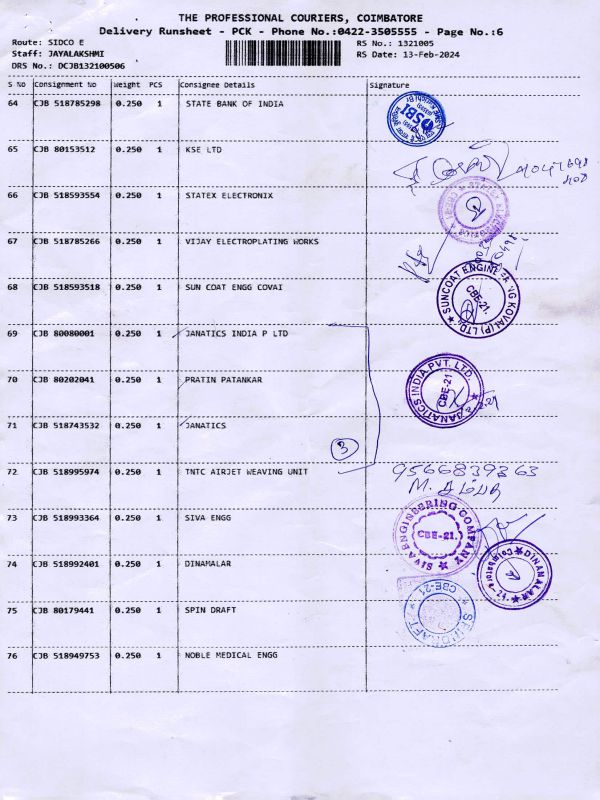 THE PROFESSIONAL COURIERS, COIMBATORE
Delivery Runsheet - PCK - Phone No.:0422-3505555 - Page No.:6
Route: SIDCO E
RS No.: 1321005
Staff: JAYALAKSHMI
RS Date: 13-Feb-2024
DRS No.: DCJB132100506
S No Consignment No Weight PCS Consignee Details Signature
64 CJB 518785298 0.250 1 STATE BANK OF INDIA
SBI
65 CJB 80153512 0.250 1 KSE LTD
66 CJB 518593554 0.250 1 STATEX ELECTRONIX
67 CJB 518785266 0.250 1 VIJAY ELECTROPLATING WORKS
68 CJB 518593518 0.250 1 SUN COAT ENGG COVAI
SUNCOAT ENGINEERING KOVAI (P) LTD
CBE-21.
69 CJB 80080001 0.250 1 JANATICS INDIA P LTD
70 CJB 80202041 0.250 1 PRATIN PATANKAR
JANATICS INDIA PVT. LTD.
CBE-21
71 CJB 518743532 0.250 1 JANATICS
3
72 CJB 518995974 0.250 1 TNTC AIRJET WEAVING UNIT
9566839363
73 CJB 518993364 0.250 1 SIVA ENGG
SIVA ENGINEERING COMPANY
CBE-21.
74 CJB 518992401 0.250 1 DINAMALAR
DINAMALAR
Coimbatore-21.
75 CJB 80179441 0.250 1 SPIN DRAFT
CBE-21
76 CJB 518949753 0.250 1 NOBLE MEDICAL ENGG